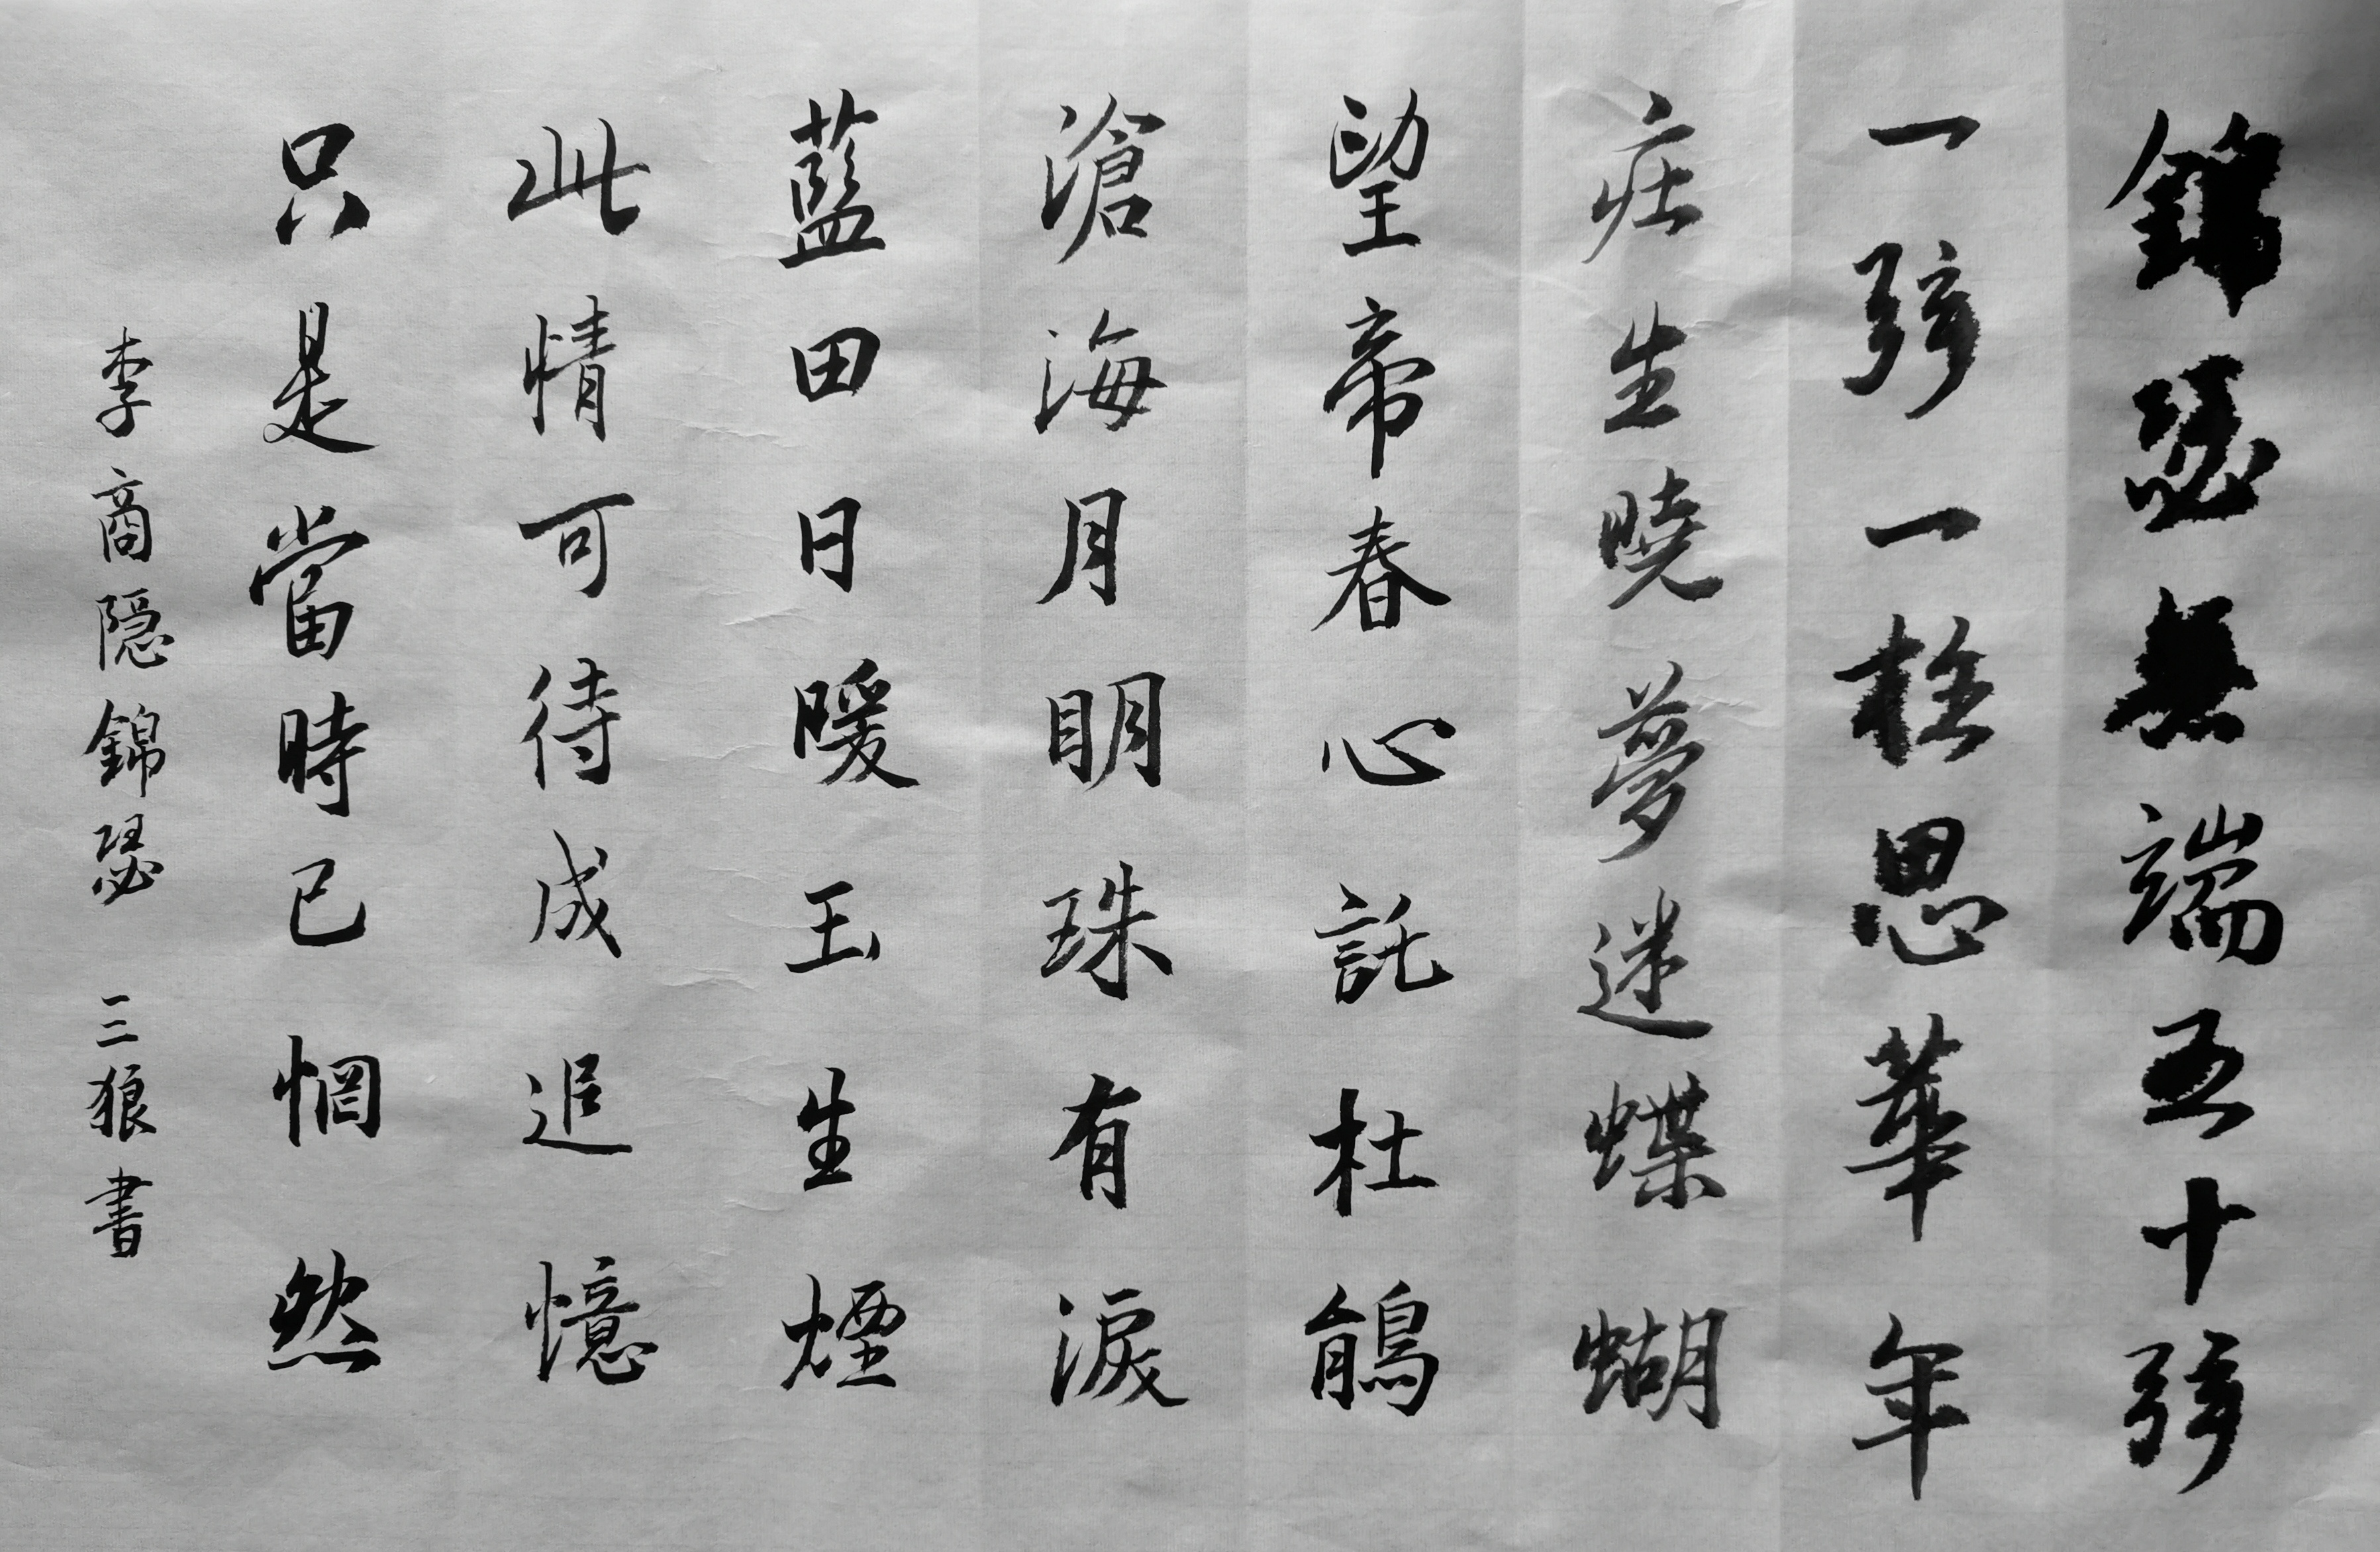 錦瑟無端五十弦
一弦一柱思華年
莊生曉夢迷蝶蝴
望帝春心託杜鵑
滄海月明珠有淚
藍田日暖玉生煙
此情可待成追憶
只是當時已惘然
李商隠錦瑟 三狼書